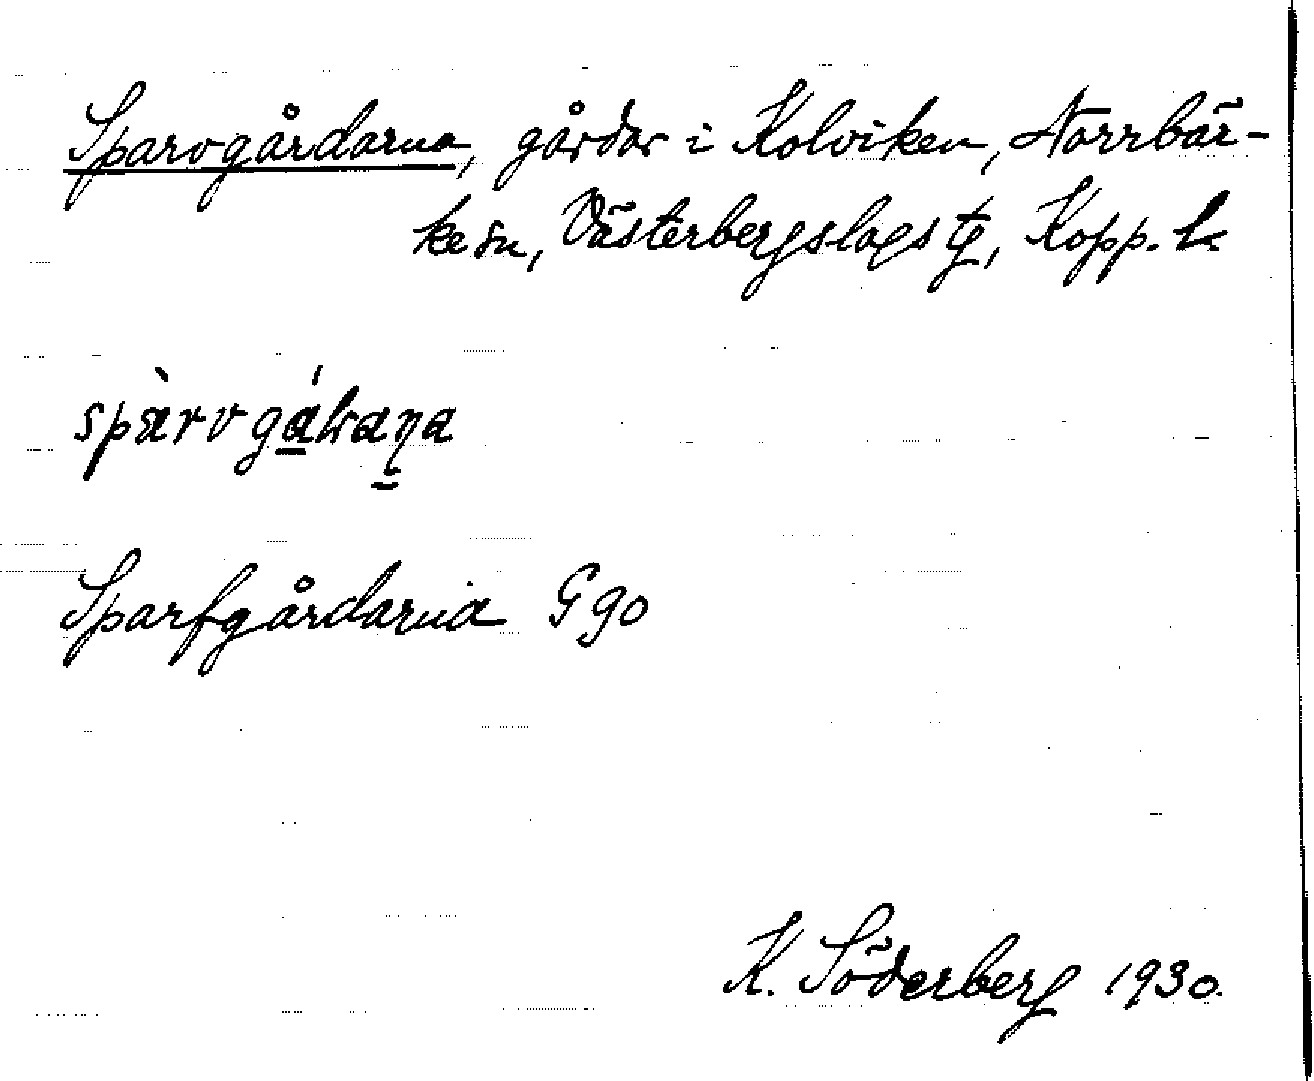 Sparvgårdarna, gårdar i Kolviken, Norrbär-
ke sn, Västerbergslags tg, Kopp. l.
Sparfgårdarna G 90
K. Söderberg 1930.